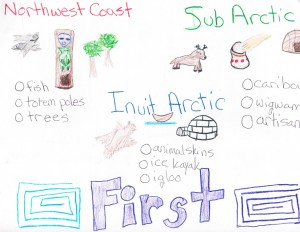 Northwest Coast
Sub Arctic
fish
totem poles
trees
Inuit Arctic
caribou
wigwam
artisan
animal skins
ice kayak
igloo
First